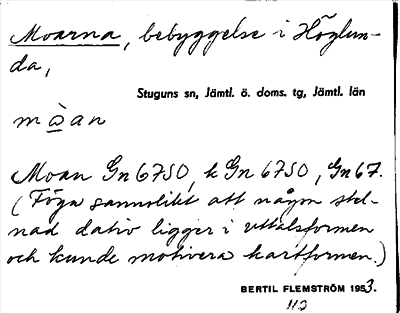 Moarna, bebyggelse i Höglun-
da,
Stuguns sn, Jämtl. ö. doms. tg, Jämtl. län
mò̲an
Moan Gn 6750, k Gn 6750, Gn 67.
(Föga sannolikt att någon stel-
nad dativ ligger i uttalsformen
och kunde motivera kartformen.)
BERTIL FLEMSTRÖM 1953.